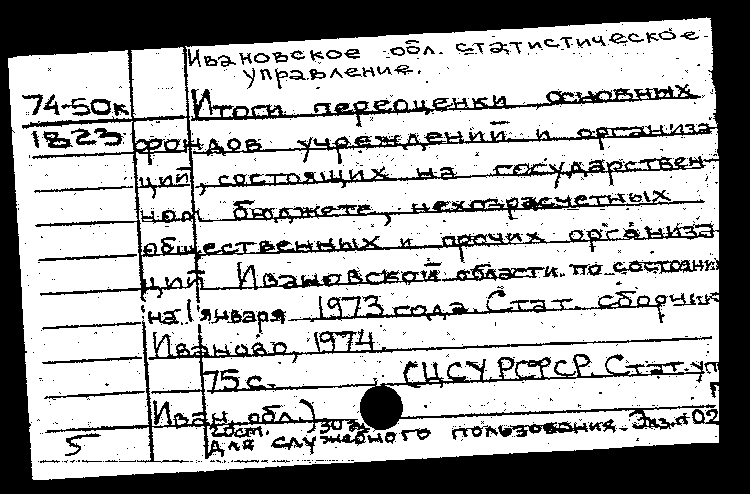 Ивановское обл. статистическое
управление.
74-50к Итоги переоценки основных
1823 фондов учреждений и организа-
ций, состоящих на государствен-
ном бюджете, нехозрасчетных
общественных и прочих организа-
ций Ивановской области по состоянию
на 1 января 1973 года. Стат. сборник
Иваново, 1974.
75 с. (ЦСУ РСФСР. Стат. уп
Иван. обл.)
5 Для служебного пользования. Экз. n 02